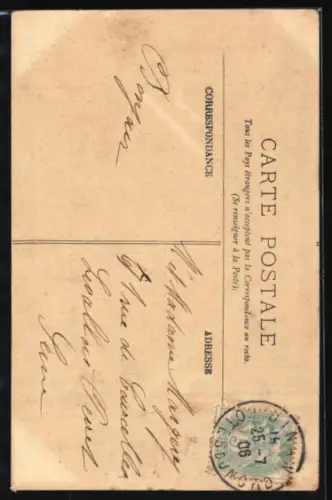 CARTE POSTALE
Tous les Pays Étrangers n'acceptent pas la Correspondance au recto.
(Se renseigner à la Poste).
CORRESPONDANCE
ADRESSE
Bonjour
Madame
rue de Courcelles
Levallois Perret
Seine
25-7
06